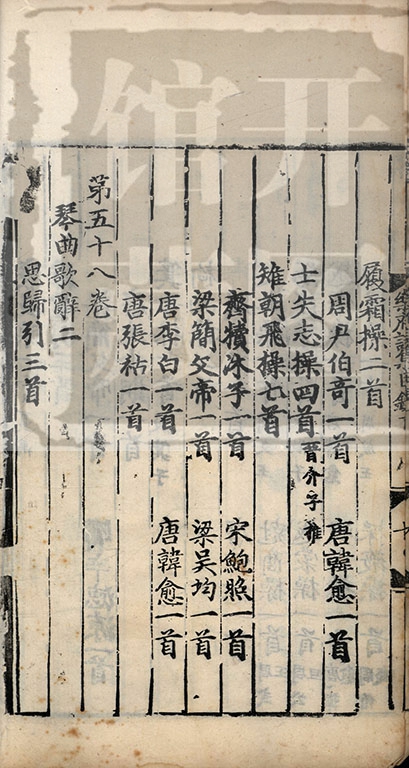 履霜操二首
周尹伯竒一首 唐韓愈一首
士失志操四首 晉介子推
雉朝飛操七首
齊犢沐子一首 宋鮑照一首
梁簡文帝一首 梁吳均一首
唐李白一首 唐韓愈一首
唐張祜一首
第五十八卷
琴曲歌辭二
思歸引三首